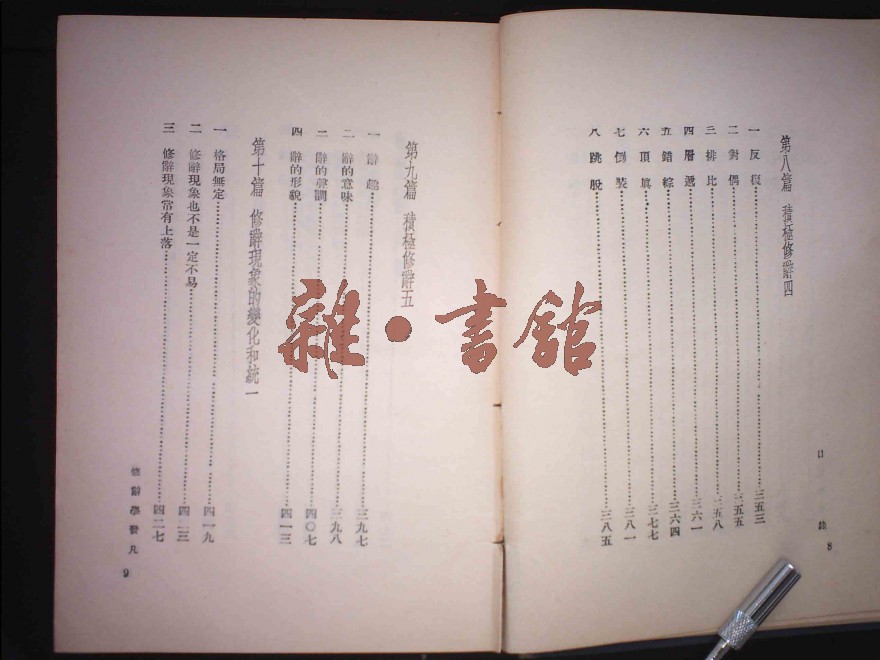 目錄
8
第八篇 積極修辭四
一 反復…………三五三
二 對偶…………三五五
三 排比…………三五八
四 層遞…………三六一
五 錯綜…………三六四
六 頂真…………三七七
七 倒裝…………三八一
八 跳脫…………三八五
第九篇 積極修辭五
一 辭趣…………三九七
二 辭的意味…………三九八
三 辭的聲調…………四〇七
四 辭的形貌…………四一三
第十篇 修辭現象的變化和統一
一 格局無定…………四一九
二 修辭現象也不是一定不易…………四二三
三 修辭現象常有上落…………四二七
修辭學發凡
9
雜·書館